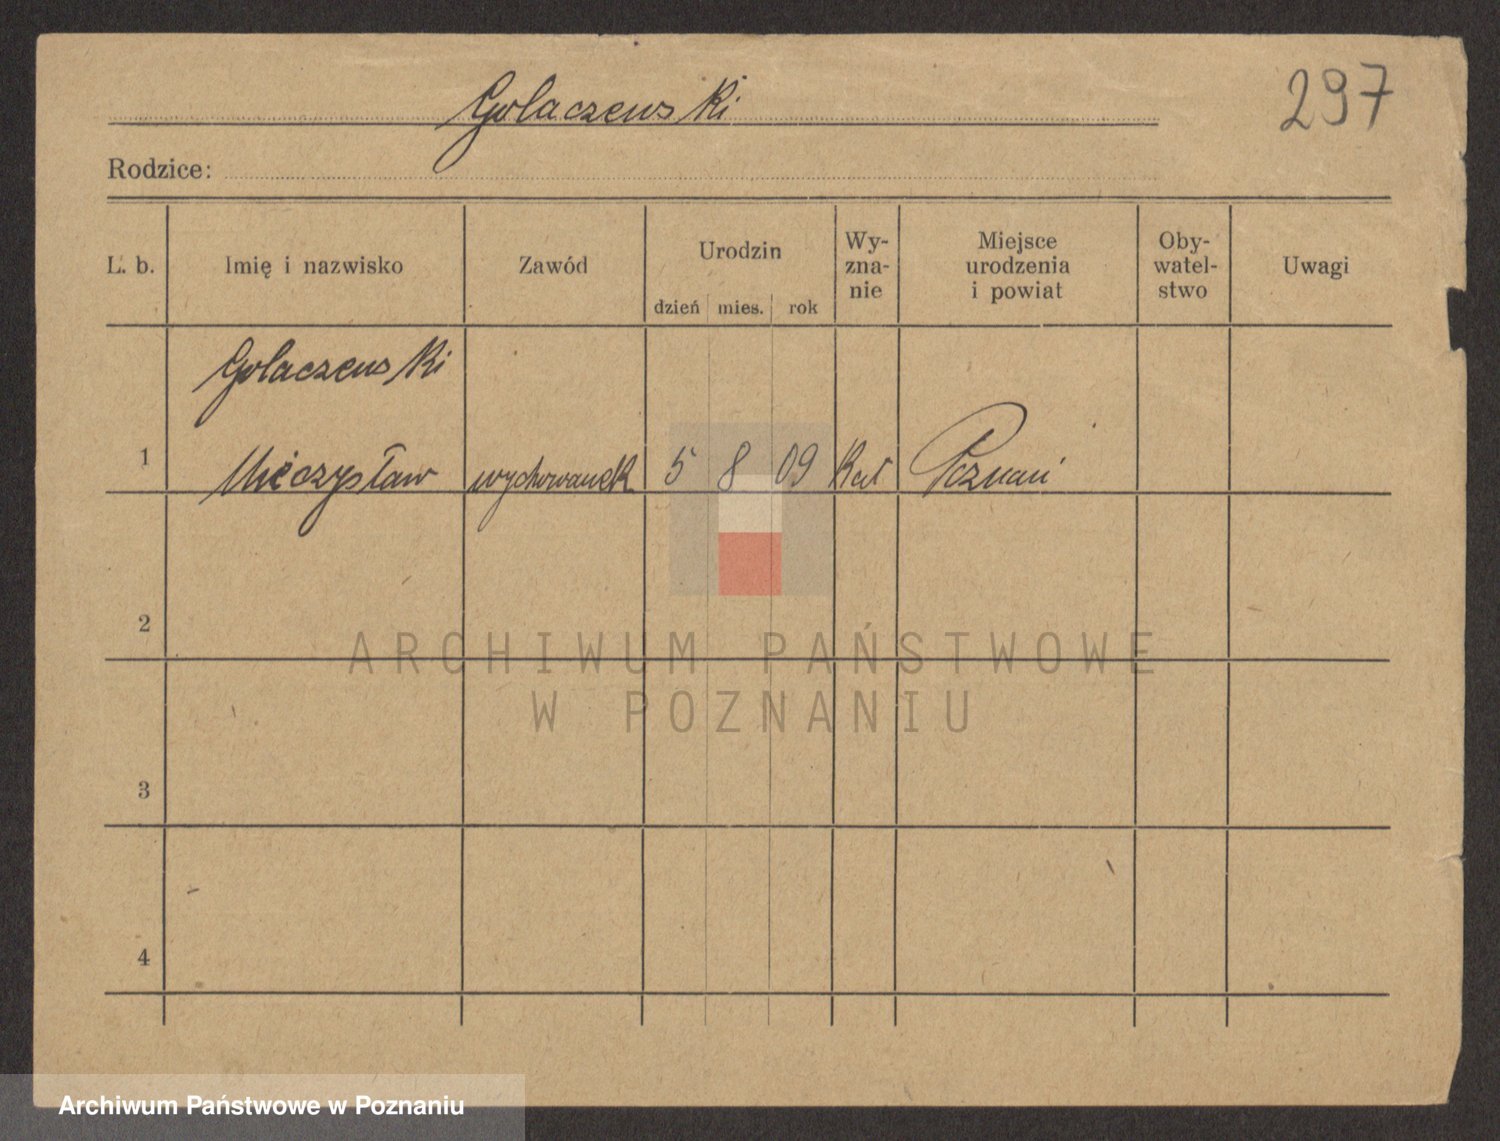 Golaczewski
297
Rodzice:
L. b. Imię i nazwisko Zawód Urodzin dzień mies. rok Wy-zna-nie Miejsce urodzenia i powiat Oby-watel-stwo Uwagi
Golaczewski
1 Mieczysław wychowanek 5 8 09 Kat Poznań
2
ARCHIWUM PAŃSTWOWE
W POZNANIU
3
4
Archiwum Państwowe w Poznaniu